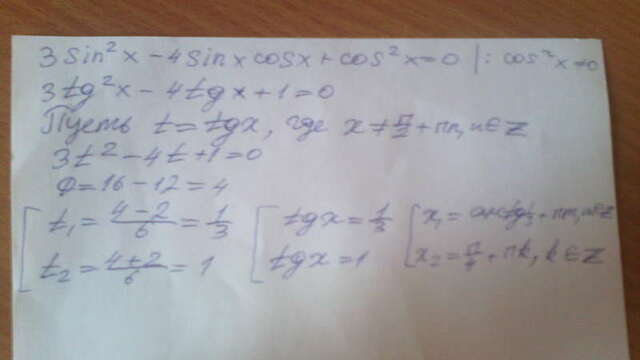 3 sin²x − 4 sin x cos x + cos²x = 0 | : cos²x ≠ 0
3tg²x − 4tgx + 1 = 0
Пусть t = tgx, где x ≠ π/2 + πn, n ∈ Z
3t² − 4t + 1 = 0
D = 16 − 12 = 4
[ t₁ = (4 − 2)/6 = 1/3 [ tgx = 1/3 [ x₁ = arctg 1/3 + πn, n ∈ Z
t₂ = (4 + 2)/6 = 1 tgx = 1 x₂ = π/4 + πk, k ∈ Z